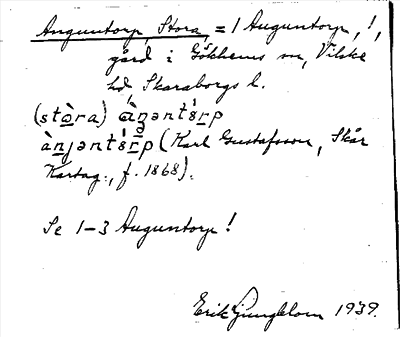 Auguntorp, Stora, = 1 Auguntorp, !,
gård i Gökhems sn, Vilske
hd, Skaraborgs l.
(stòra) àŋəntèrp
àŋjəntèrp (Karl Gustafsson, Skår
Kartag., f. 1868).
Se 1-3 Auguntorp!
Erik Ljungblom 1939.